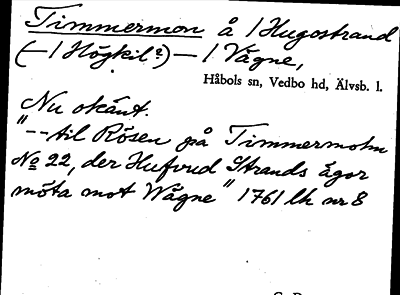 Timmermon å 1 Hugostrand
(— 1 Högkil?) — 1 Vågne,
Håbols sn, Vedbo hd, Älvsb. l.
Nu okänt.
"-- til Rösen på Timmermohn
No 22, der Hufvud Strands ägor
möta mot Wågne" 1761 lh nr 8